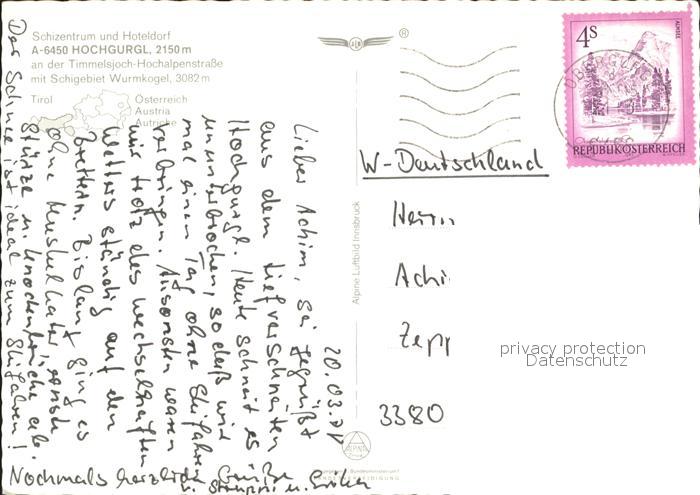 Schizentrum und Hoteldorf
A-6450 HOCHGURGL, 2150 m
an der Timmelsjoch-Hochalpenstraße
mit Schigebiet Wurmkogel, 3082 m
Tirol
Österreich
Austria
Autriche
®
4s
ALMSEE
REPUBLIK ÖSTERREICH
W-Deutschland
Herrn
Achi
Zepp
3380
privacy protection
Datenschutz
Alpine Luftbild Innsbruck
20.03.
Lieber Achim, sei gegrüßt
aus dem tiefverschneiten
Hochgurgl. Heute schneit es
ununterbrochen, so daß wir
mal einen Tag ohne Skifahren
verbringen. Ansonsten waren
wir trotz des wechselhaften
Wetters ständig auf den
Brettern. Bislang ging es
ohne Muskelkater
Stürze u. Knochenbrüche ab.
Der Schnee ist ideal zum Skifahren!
Nochmals herzliche Grüße
u.